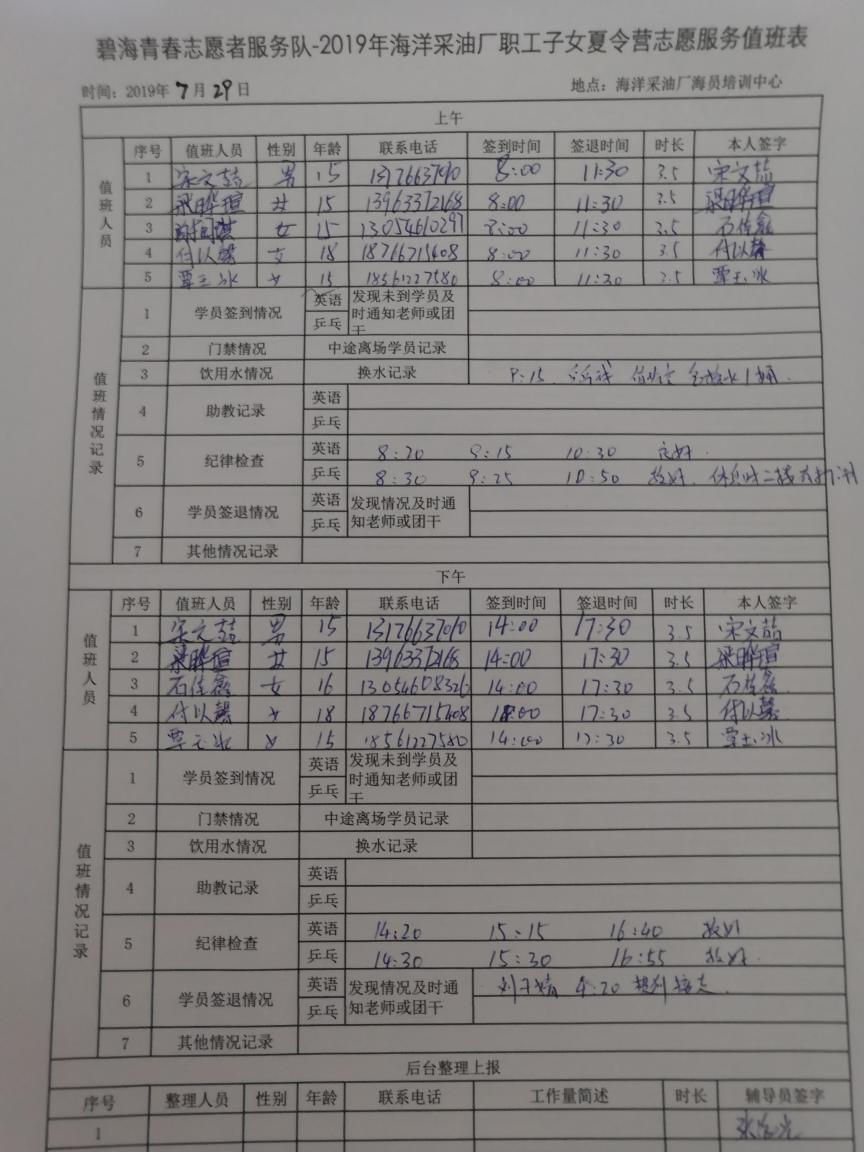 碧海青春志愿者服务队-2019年海洋采油厂职工子女夏令营志愿服务值班表
时间：2019年 7 月 29 日 地点：海洋采油厂海员培训中心
上午
值班人员
序号 值班人员 性别 年龄 联系电话 签到时间 签退时间 时长 本人签字
1 宋文喆 男 15 13176637010 8:00 11:30 3.5 宋文喆
2 梁晔瑄 女 15 13963372168 8:00 11:30 3.5 梁晔瑄
3 女 15 13054610297 8:00 11:30 3.5 石佳鑫
4 付以馨 女 18 18766715408 8:00 11:30 3.5 付以馨
5 覃玉冰 女 15 18561227580 8:00 11:30 3.5 覃玉冰
值班情况记录
1 学员签到情况 英语 发现未到学员及时通知老师或团干
乒乓
2 门禁情况 中途离场学员记录
3 饮用水情况 换水记录
4 助教记录 英语
乒乓
5 纪律检查 英语 8:20 9:15 10:30 良好.
乒乓 8:30 9:25 10:50 较好.
6 学员签退情况 英语 发现情况及时通知老师或团干
乒乓
7 其他情况记录
下午
值班人员
序号 值班人员 性别 年龄 联系电话 签到时间 签退时间 时长 本人签字
1 宋文喆 男 15 13176637010 14:00 17:30 3.5 宋文喆
2 梁晔瑄 女 15 13963372168 14:00 17:30 3.5 梁晔瑄
3 石佳鑫 女 16 13054608326 14:00 17:30 3.5 石佳鑫
4 付以馨 女 18 18766715408 14:00 17:30 3.5 付以馨
5 覃玉冰 女 15 18561227580 14:00 17:30 3.5 覃玉冰
值班情况记录
1 学员签到情况 英语 发现未到学员及时通知老师或团干
乒乓
2 门禁情况 中途离场学员记录
3 饮用水情况 换水记录
4 助教记录 英语
乒乓
5 纪律检查 英语 14:20 15:15 16:40 较好
乒乓 14:30 15:30 16:55 较好.
6 学员签退情况 英语 发现情况及时通知老师或团干 4:20 接走.
乒乓
7 其他情况记录
后台整理上报
序号 整理人员 性别 年龄 联系电话 工作量简述 时长 辅导员签字
1